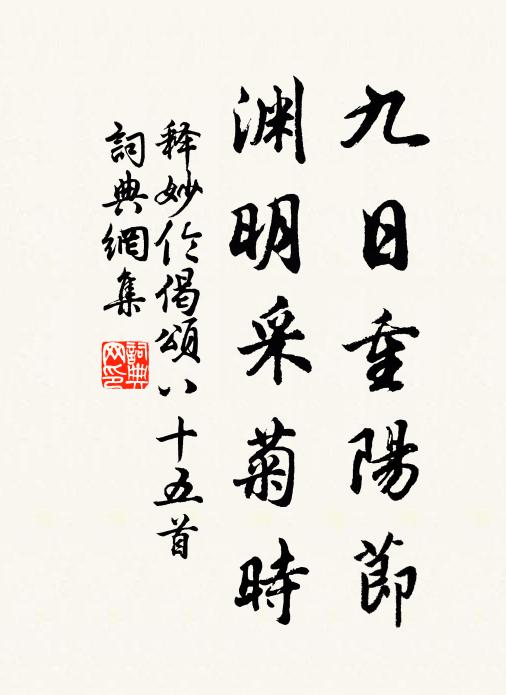 九日重陽節
渊明采菊時
释妙伦偈頌八十五首
詞典網集
詞典网印